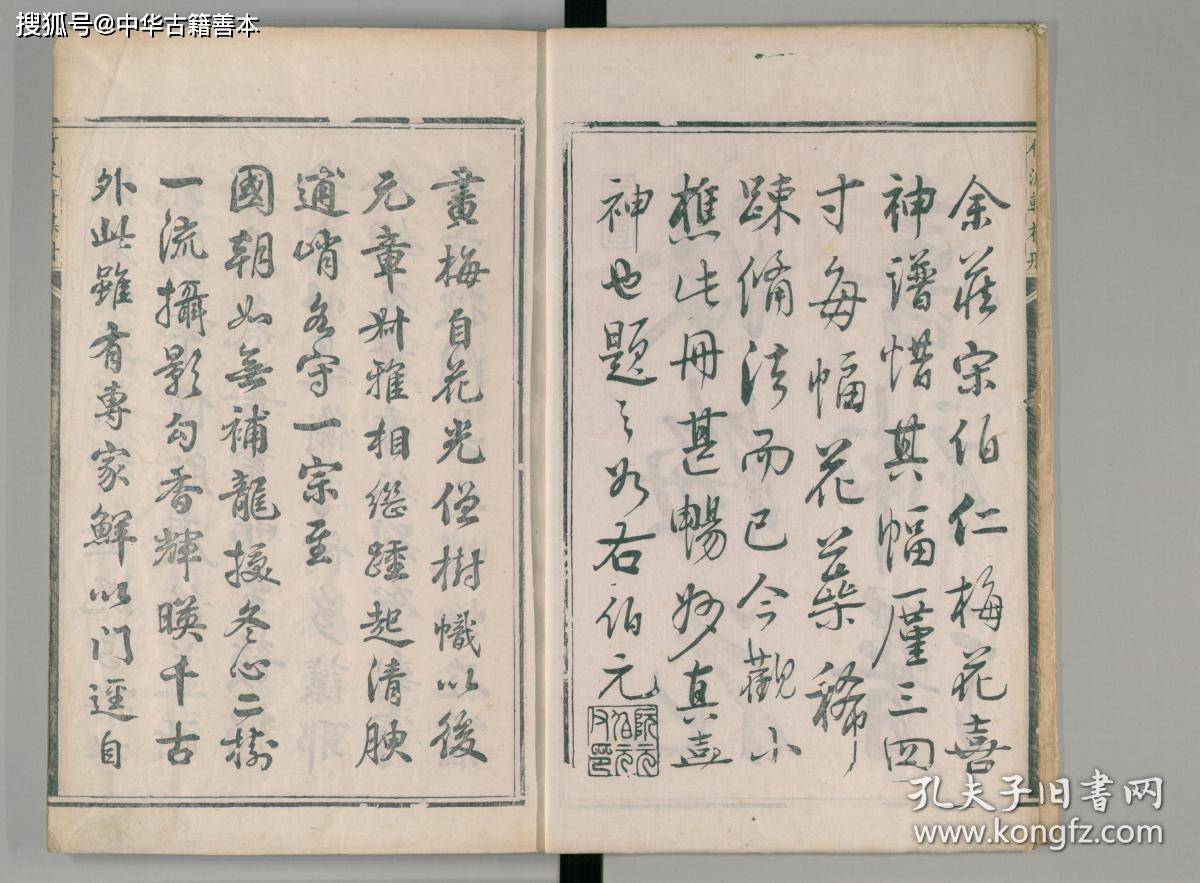 搜狐号@中华古籍善本
余莊宋伯仁梅花喜
神譜惜其幅廑三四
寸每幅花蘂稀
踈備法而已今觀小
樵此冊甚暢妙真喜
神也題之如右伯元
畫梅自花光僧樹幟以後
元章叔雅相繼踵起清腴
逋峭各守一宗至
國朝如無補龍接冬心二樹
一流攝影勾香輝暎千古
外此雖有專家鮮以門逕自
孔夫子旧书网
www.kongfz.com